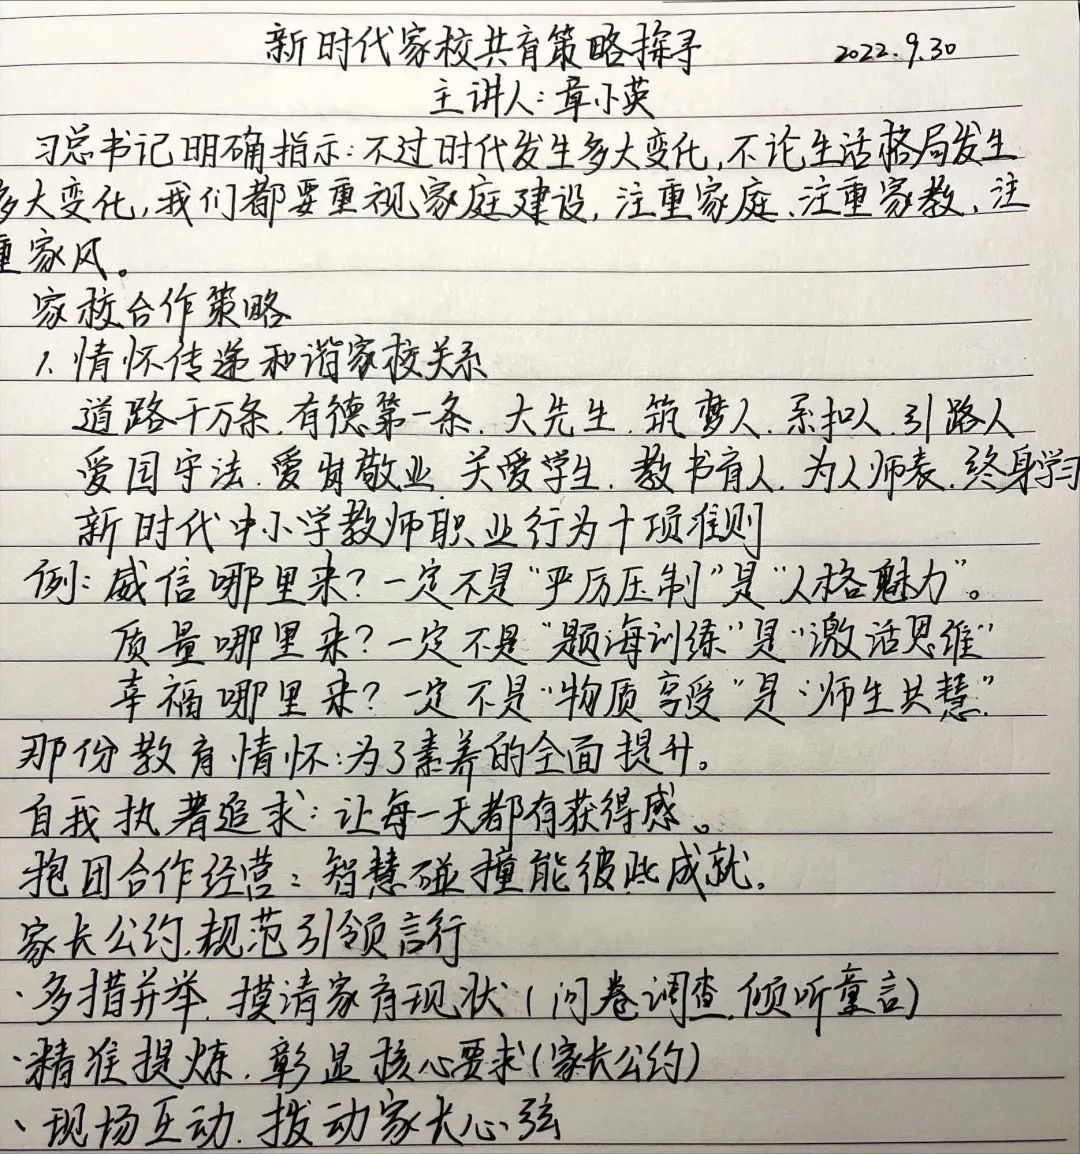 新时代家校共育策略探寻 2022.9.30
主讲人:章小英
习总书记明确指示:不过时代发生多大变化,不论生活格局发生
多大变化,我们都要重视家庭建设,注重家庭、注重家教、注
重家风。
家校合作策略
1、情怀传递和谐家校关系
道路千万条,有德第一条,大先生,筑梦人,系扣人,引路人
爱国守法,爱岗敬业,关爱学生,教书育人,为人师表,终身学习
新时代中小学教师职业行为十项准则
例:威信哪里来?一定不是"严厉压制"是"人格魅力"。
质量哪里来?一定不是"题海训练"是"激活思维"
幸福哪里来?一定不是"物质享受"是"师生共慧"
那份教育情怀:为了素养的全面提升。
自我执着追求:让每一天都有获得感。
抱团合作经营:智慧碰撞能彼此成就。
家长公约,规范引领言行
·多措并举,摸清家育现状(问卷调查,倾听童言)
·精准提炼,彰显核心要求(家长公约)
、现场互动,拨动家长心弦